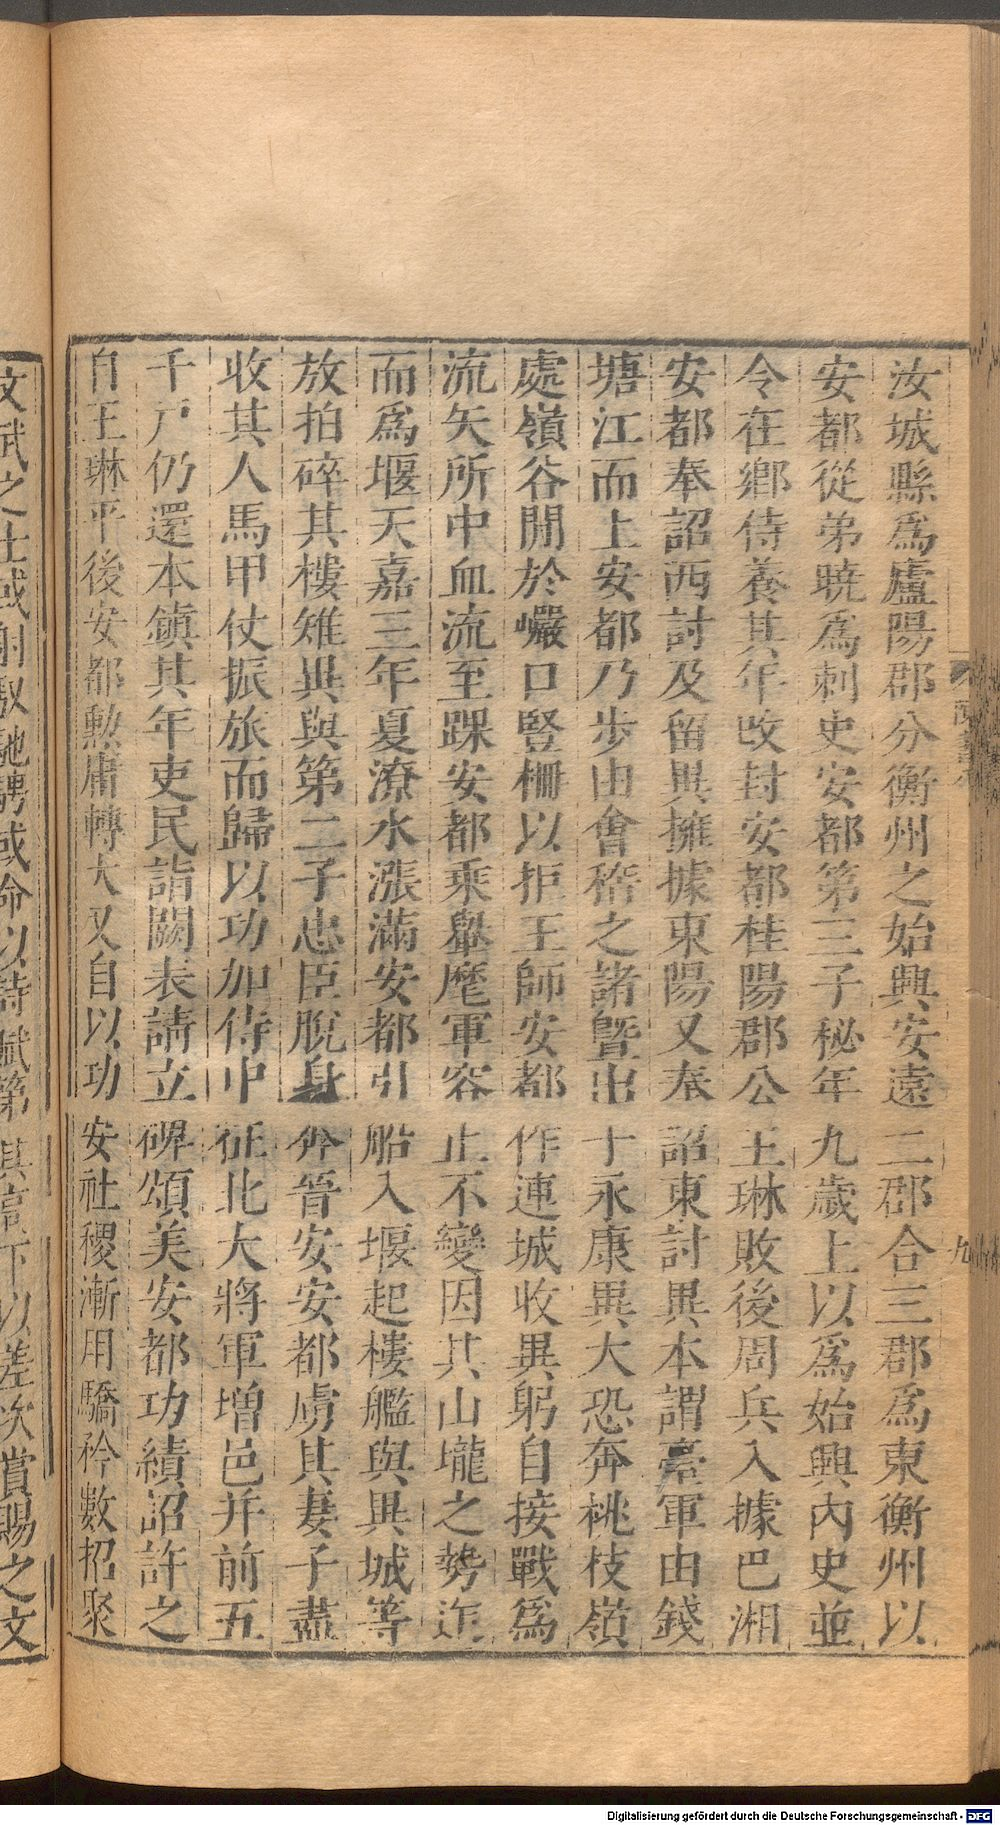 汝城縣爲廬陽郡分衡州之始興安遠二郡合三郡爲東衡州以
安都從弟曉爲刺史安都第三子秘年九歲上以爲始興內史並
令在鄉侍養其年改封安都桂陽郡公王琳敗後周兵入據巴湘
安都奉詔西討及留異擁據東陽又奉詔東討異本謂臺軍由錢
塘江而上安都乃步由會稽之諸曁出于永康異大恐奔桃枝嶺
處嶺谷閒於巖口竪柵以拒王師安都作連城收異躬自接戰爲
流矢所中血流至踝安都乘轝麾軍容止不變因其山壠之勢迮
而爲堰天嘉三年夏潦水漲滿安都引船入堰起樓艦與異城等
放拍碎其樓雉異與第二子忠臣脫身奔晉安安都虜其妻子盡
收其人馬甲仗振旅而歸以功加侍中征北大將軍増邑并前五
千戸仍還本鎭其年吏民詣闕表請立碑頌美安都功績詔許之
自王琳平後安都勲庸轉大又自以功安社稷漸用驕矜數招聚
文武之士或射馭馳騁或命以詩賦第其高下以差次賞賜之文
九
Digitalisierung gefördert durch die Deutsche Forschungsgemeinschaft - DFG